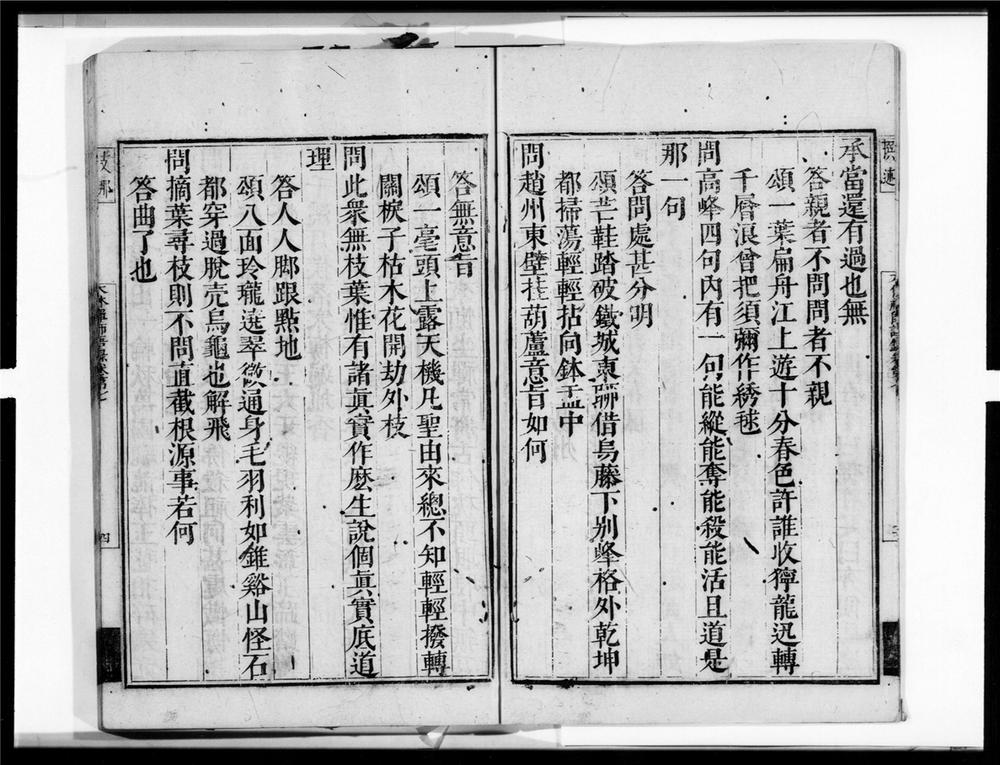 承當還有過也無
答親者不問問者不親
頌一葉扁舟江上遊十分春色許誰收獰龍迅轉
千層浪曾把須彌作綉毬
問高峰四句內有一句能縱能奪能殺能活且道是
那一句
答問處甚分明
頌芒鞋踏破鐵城東聊借烏藤下別峰格外乾坤
都掃蕩輕輕拈向鉢盂中
問趙州東壁挂葫蘆意旨如何
答無意旨
頌一毫頭上露天機凡聖由來總不知輕輕撥轉
關棙子枯木花開劫外枝
問此衆無枝葉惟有諸眞實作麽生說個眞實底道
理
答人人脚跟點地
頌八面玲瓏遶翠微通身毛羽利如錐谿山怪石
都穿過脫壳烏龜也解飛
問摘葉尋枝則不問直截根源事若何
答曲了也
四